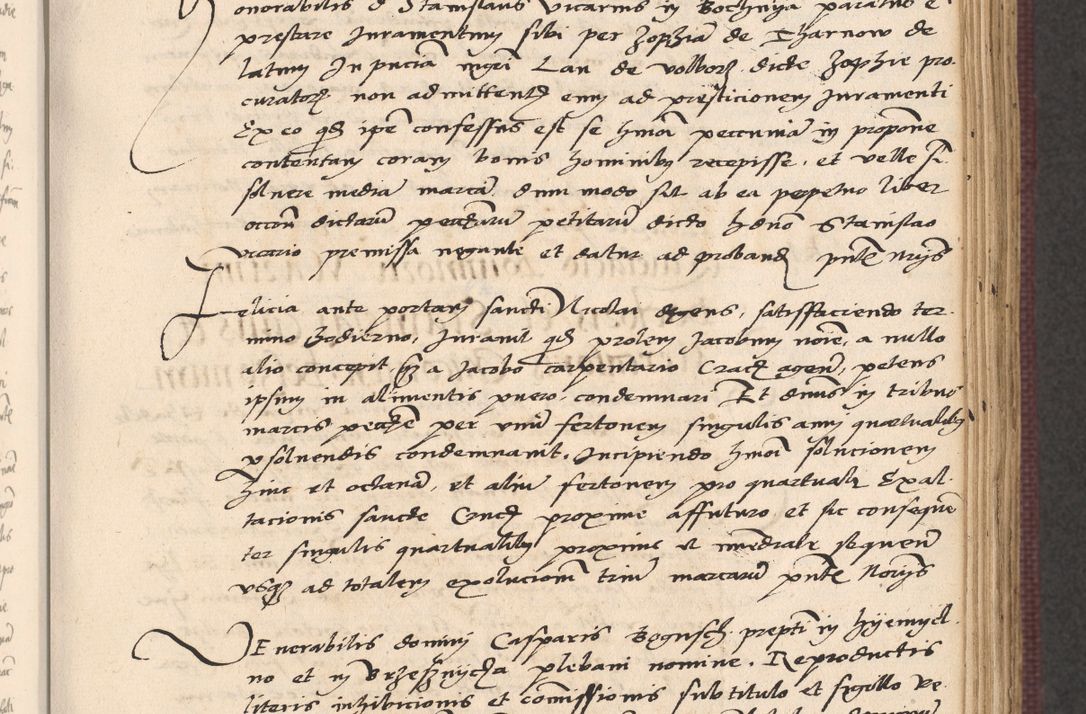 onorabilis d Stanislaus vicarius in Bochnya paratus e
prestare Iuramentum sibi per Zophiam de Tharnow de
latum In pnciam mgri Lau de Volborz dicte Zophie pro
curatoris non admittentis eum ad presticionem Iuramenti
Ex eo qd ipe confessus est se hmoi peccuniam in propone
contentam coram bonis hominibus recepisse, et velle si
soluere mediam marcam dum modo sit ab ea perpetuo liber
occon dictarum petitarum dicto hdno Stanislao
vicario premissa negante et datur ad proband pnte nrijs
Felicia ante portam sancti Nicolai degens, satisfaciendo ter
mino hodierno, Iurauit qd prolem Jacobum noie, a nullo
alio concepit, a Jacobo carpentario Crac agen, petens
ipsum in alimentis puero condemnari Et dnus in tribus
marcis pecc per vnum fertonem singulis anni quartualibus
psoluendis condemnauit, Incipiendo hmoi solucionem
hinc ad octauam, et alium fertonem pro quartuali Exal
tacionis sancte Crucis proxime affuturo et sic consequen
ter singulis quartualibus proximis et immediate sequen
vsq ad totalem exolucionem trium marcarum pnte Norijs
Venerabilis domini Casparis Bogusch prepti in Hyemyel
no et in Vrzesznycza plebani nomine, Reproductis
literis inhibicionis et commissionis sub titulo et sigillo Re